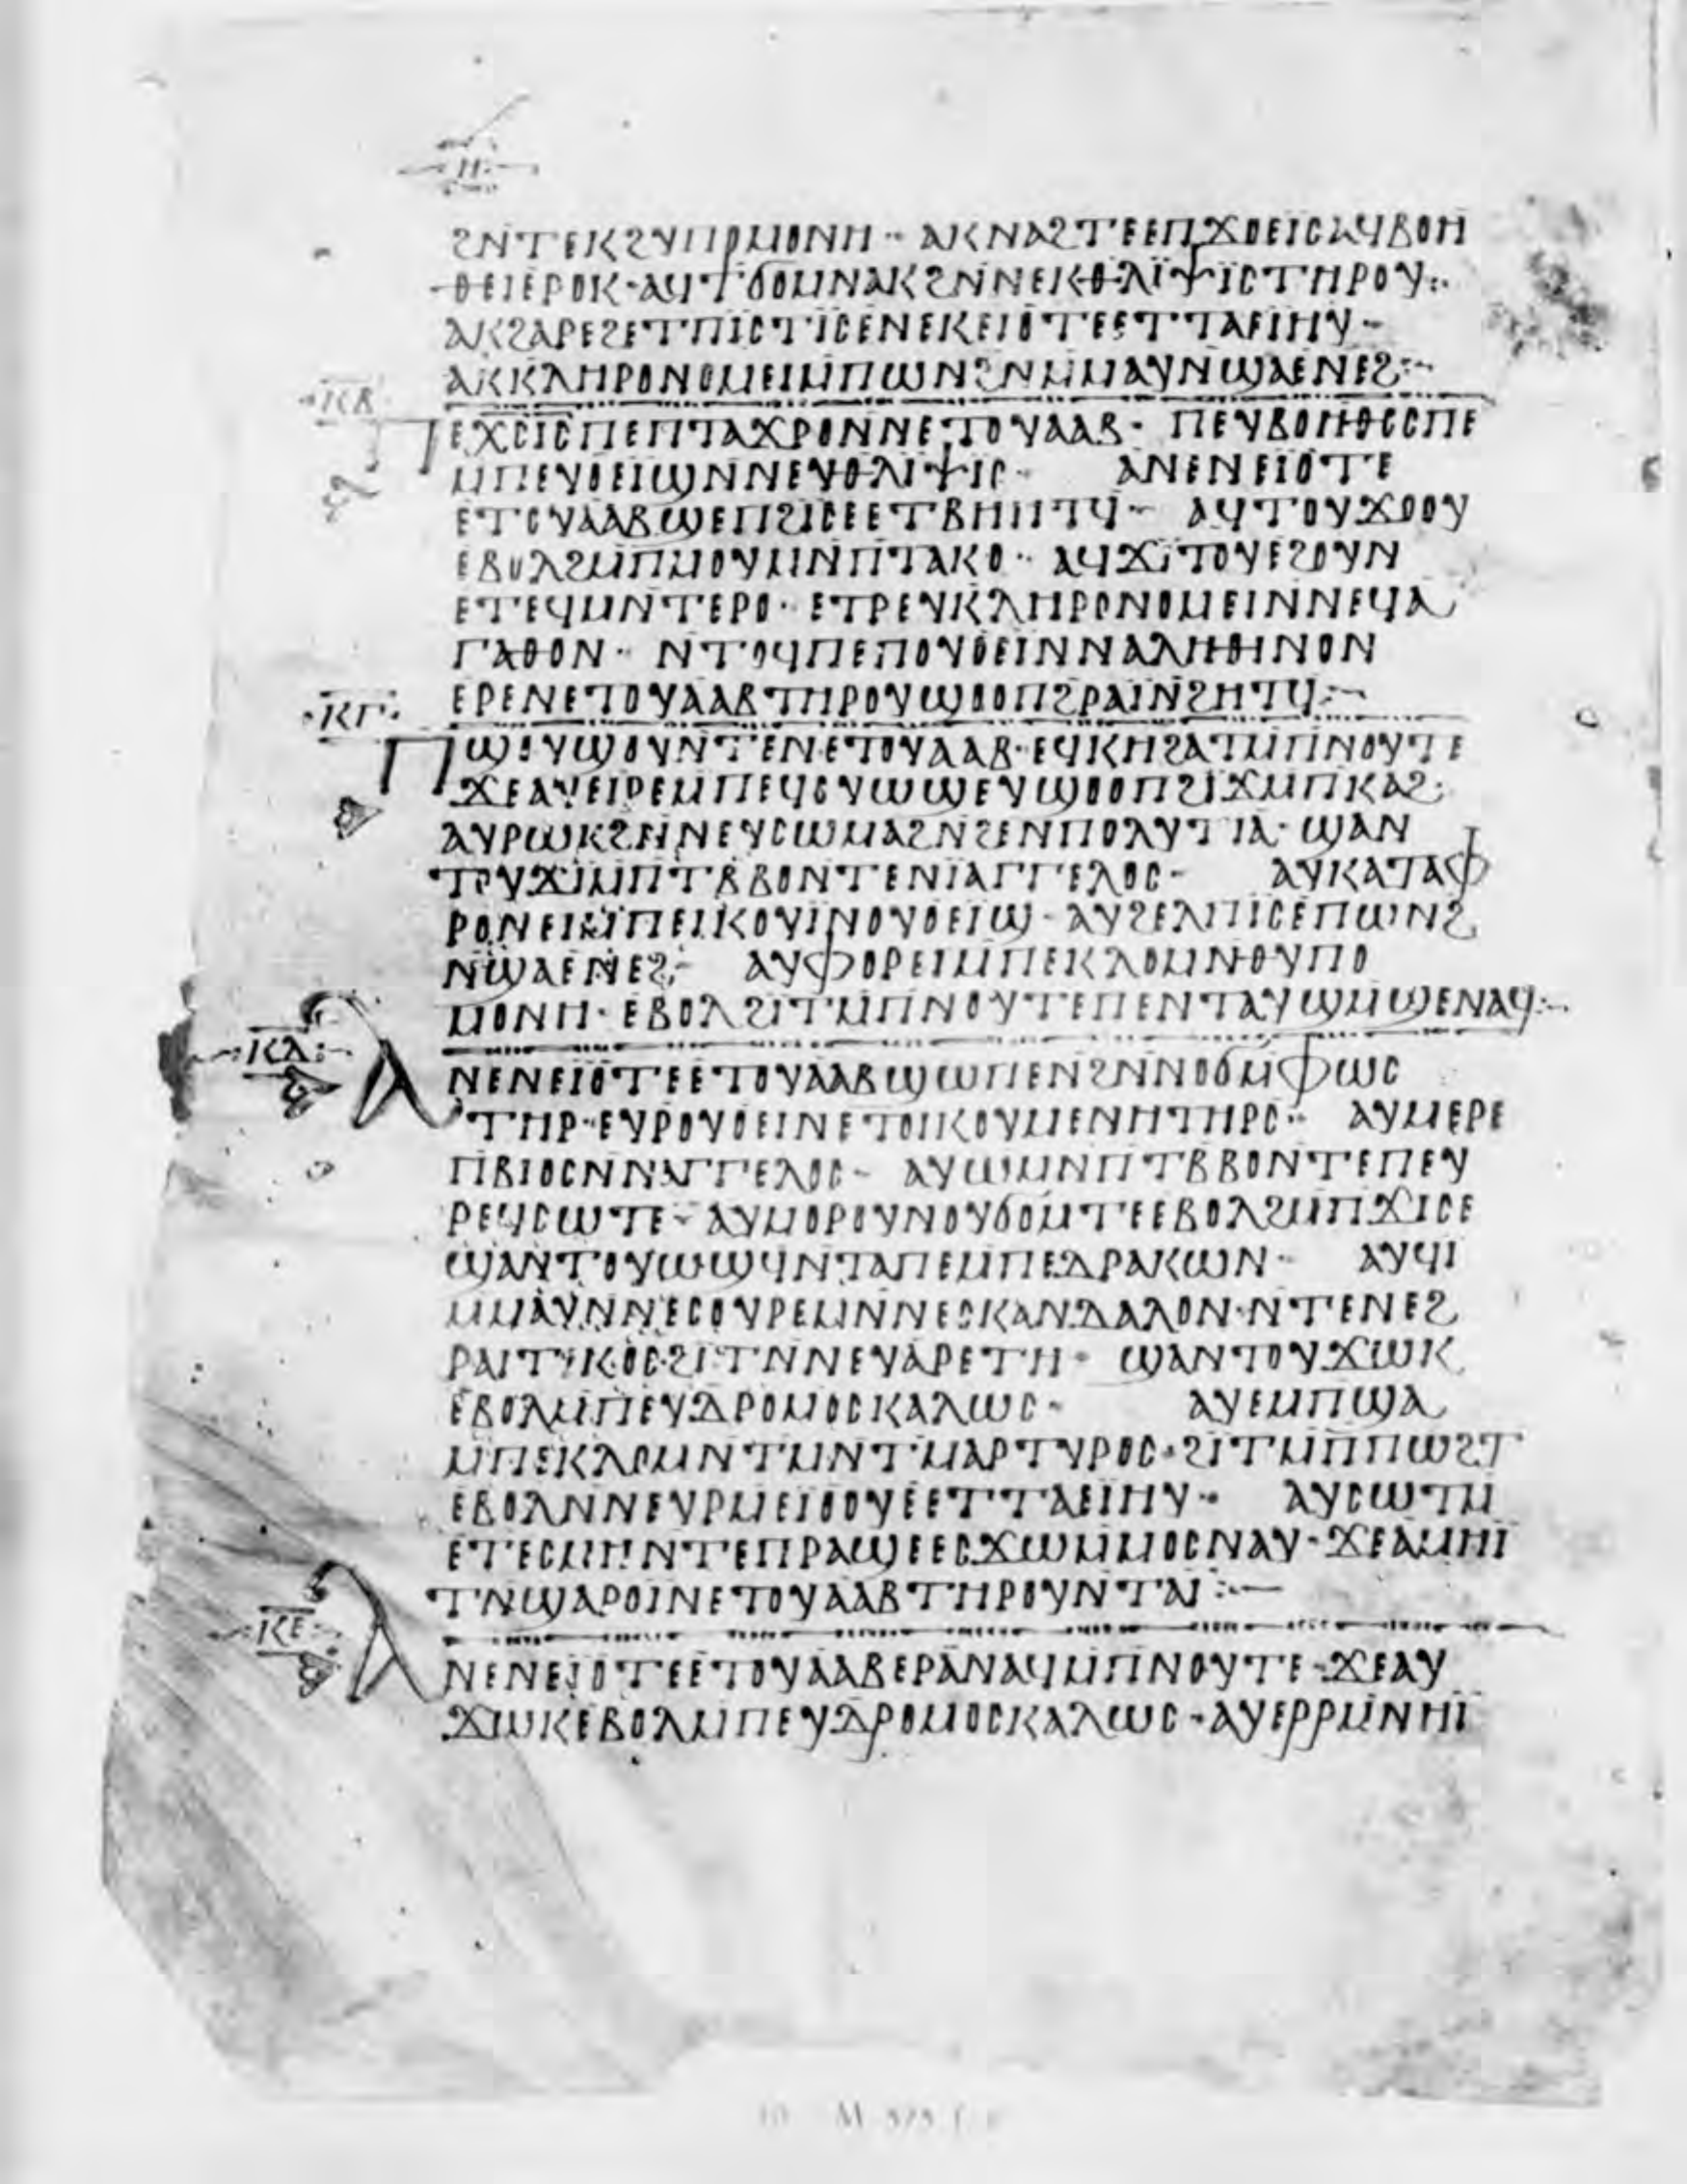 ⲏ
ϩⲛⲧⲉⲕϩⲩⲡⲟⲙⲟⲛⲏ· ⲁⲕⲛⲁϩⲧⲉⲉⲡϫⲟⲉⲓⲥⲁϥⲃⲟⲏ
ⲑⲉⲓⲉⲣⲟⲕ·ⲁϥϯϭⲟⲙⲛⲁⲕϩⲛⲛⲉⲕⲑⲗⲓⲯⲓⲥⲧⲏⲣⲟⲩ:
ⲁⲕϩⲁⲣⲉϩⲉⲧⲡⲓⲥⲧⲓⲥⲉⲛⲉⲕⲉⲓⲟⲧⲉⲉⲧⲧⲁⲉⲓⲏⲩ-
ⲁⲕⲕⲗⲏⲣⲟⲛⲟⲙⲉⲓⲙⲡⲱⲛϩⲛⲙⲙⲁⲩⲛϣⲁⲉⲛⲉϩ:-
ⲕⲃ
ⲡⲉⲭⲥⲓⲥⲡⲉⲡⲧⲁϫⲣⲟⲛⲛⲉⲧⲟⲩⲁⲁⲃ· ⲡⲉⲩⲃⲟⲏⲑⲟⲥⲡⲉ
ⲙⲡⲉⲩⲟⲉⲓϣⲛⲛⲉⲩⲑⲗⲓⲯⲓⲥ· ⲁⲛⲉⲛⲉⲓⲟⲧⲉ
ⲉⲧⲟⲩⲁⲁⲃϣⲉⲡϩⲓⲥⲉⲉⲧⲃⲏⲏⲧϥ- ⲁϥⲧⲟⲩϫⲟⲟⲩ
ⲉⲃⲟⲗϩⲙⲡⲙⲟⲩⲙⲛⲡⲧⲁⲕⲟ· ⲁϥϫⲓⲧⲟⲩⲉϩⲟⲩⲛ
ⲉⲧⲉϥⲙⲛⲧⲉⲣⲟ· ⲉⲧⲣⲉⲩⲕⲗⲏⲣⲟⲛⲟⲙⲉⲓⲛⲛⲉϥⲁ
ⲅⲁⲑⲟⲛ· ⲛⲧⲟϥⲡⲉⲡⲟⲩⲟⲉⲓⲛⲛⲁⲗⲏⲑⲓⲛⲟⲛ
ⲉⲣⲉⲛⲉⲧⲟⲩⲁⲁⲃⲧⲏⲣⲟⲩϣⲟⲟⲡϩⲣⲁⲓⲛϩⲏⲧϥ:-
ⲕⲅ
ⲡϣⲟⲩϣⲟⲩⲛⲧⲉⲛⲉⲧⲟⲩⲁⲁⲃ·ⲉϥⲕⲏϩⲁⲧⲙⲡⲛⲟⲩⲧⲉ
ϫⲉⲁⲩⲉⲓⲣⲉⲙⲡⲉϥⲟⲩⲱϣⲉⲩϣⲟⲟⲡϩⲓϫⲙⲡⲕⲁϩ:
ⲁⲩⲣⲱⲕϩⲛⲛⲉⲩⲥⲱⲙⲁϩⲛϩⲉⲛⲡⲟⲗⲩⲧⲓⲁ· ϣⲁⲛ
ⲧⲟⲩϫⲓⲙⲡⲧⲃⲃⲟⲛⲧⲉⲛⲓⲁⲅⲅⲉⲗⲟⲥ- ⲁⲩⲕⲁⲧⲁⲫ
ⲣⲟⲛⲉⲓⲙⲡⲉⲓⲕⲟⲩⲓⲛⲟⲩⲟⲉⲓϣ-ⲁⲩϩⲉⲗⲡⲓⲥⲉⲡⲱⲛϩ
ⲛϣⲁⲉⲛⲉϩ:- ⲁⲩⲫⲟⲣⲉⲓⲙⲡⲉⲕⲗⲟⲙⲛⲑⲩⲡⲟ
ⲙⲟⲛⲏ·ⲉⲃⲟⲗϩⲓⲧⲙⲡⲛⲟⲩⲧⲉⲡⲉⲛⲧⲁⲩϣⲙϣⲉⲛⲁϥ:-
ⲕⲇ
ⲁⲛⲉⲛⲉⲓⲟⲧⲉⲉⲧⲟⲩⲁⲁⲃϣⲱⲡⲉⲛϩⲛⲛⲟϭⲙⲫⲱⲥ
ⲧⲏⲣ·ⲉⲩⲣⲟⲩⲟⲉⲓⲛⲉⲧⲟⲓⲕⲟⲩⲙⲉⲛⲏⲧⲏⲣⲥ· ⲁⲩⲙⲉⲣⲉ
ⲡⲃⲓⲟⲥⲛⲛⲁⲅⲅⲉⲗⲟⲥ- ⲁⲩⲱⲙⲛⲡⲧⲃⲃⲟⲛⲧⲉⲡⲉⲩ
ⲣⲉϥⲥⲱⲧⲉ-ⲁⲩⲙⲟⲣⲟⲩⲛⲟⲩϭⲟⲙⲧⲉⲉⲃⲟⲗϩⲙⲡϫⲓⲥⲉ
ϣⲁⲛⲧⲟⲩⲱϣϥⲛⲧⲁⲡⲉⲙⲡⲉⲇⲣⲁⲕⲱⲛ- ⲁⲩϥⲓ
ⲙⲙⲁⲩⲛⲛⲉⲥⲟⲩⲣⲉⲙⲛⲛⲉⲥⲕⲁⲛⲇⲁⲗⲟⲛ·ⲛⲧⲉⲛⲉϩ
ⲣⲁⲓⲧⲓⲕⲟⲥ·ϩⲓⲧⲛⲛⲉⲩⲁⲣⲉⲧⲏ· ϣⲁⲛⲧⲟⲩϫⲱⲕ
ⲉⲃⲟⲗⲙⲡⲉⲩⲇⲣⲟⲙⲟⲥⲕⲁⲗⲱⲥ- ⲁⲩⲉⲙⲡϣⲁ
ⲙⲡⲉⲕⲗⲟⲙⲛⲧⲙⲛⲧⲙⲁⲣⲧⲩⲣⲟⲥ·ϩⲓⲧⲙⲡⲡⲱϩⲧ
ⲉⲃⲟⲗⲛⲛⲉⲩⲣⲙⲉⲓⲟⲟⲩⲉⲉⲧⲧⲁⲉⲓⲏⲩ· ⲁⲩⲥⲱⲧⲙ
ⲉⲧⲉⲥⲙⲏⲛⲧⲉⲡⲣⲁϣⲉⲉⲥϫⲱⲙⲙⲟⲥⲛⲁⲩ·ϫⲉⲁⲙⲏⲓ
ⲧⲛϣⲁⲣⲟⲓⲛⲉⲧⲟⲩⲁⲁⲃⲧⲏⲣⲟⲩⲛⲧⲁⲓ:-
ⲕⲉ
ⲁⲛⲉⲛⲉⲓⲟⲧⲉⲉⲧⲟⲩⲁⲁⲃⲉⲣⲁⲛⲁϥⲙⲡⲛⲟⲩⲧⲉ·ϫⲉⲁⲩ
ϫⲱⲕⲉⲃⲟⲗⲙⲡⲉⲩⲇⲣⲟⲙⲟⲥⲕⲁⲗⲱⲥ-ⲁⲩⲉⲣⲣⲙⲛⲏⲓ